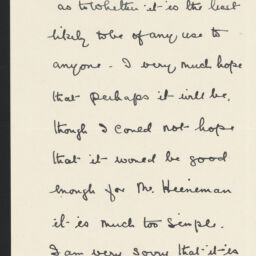 as to whether it is the least
likely to be of any use to
anyone - I very much hope
that perhaps it will be,
though I could not hope
that it would be good
enough for Mr. Heineman
it is much too simple.
I am very sorry that it is